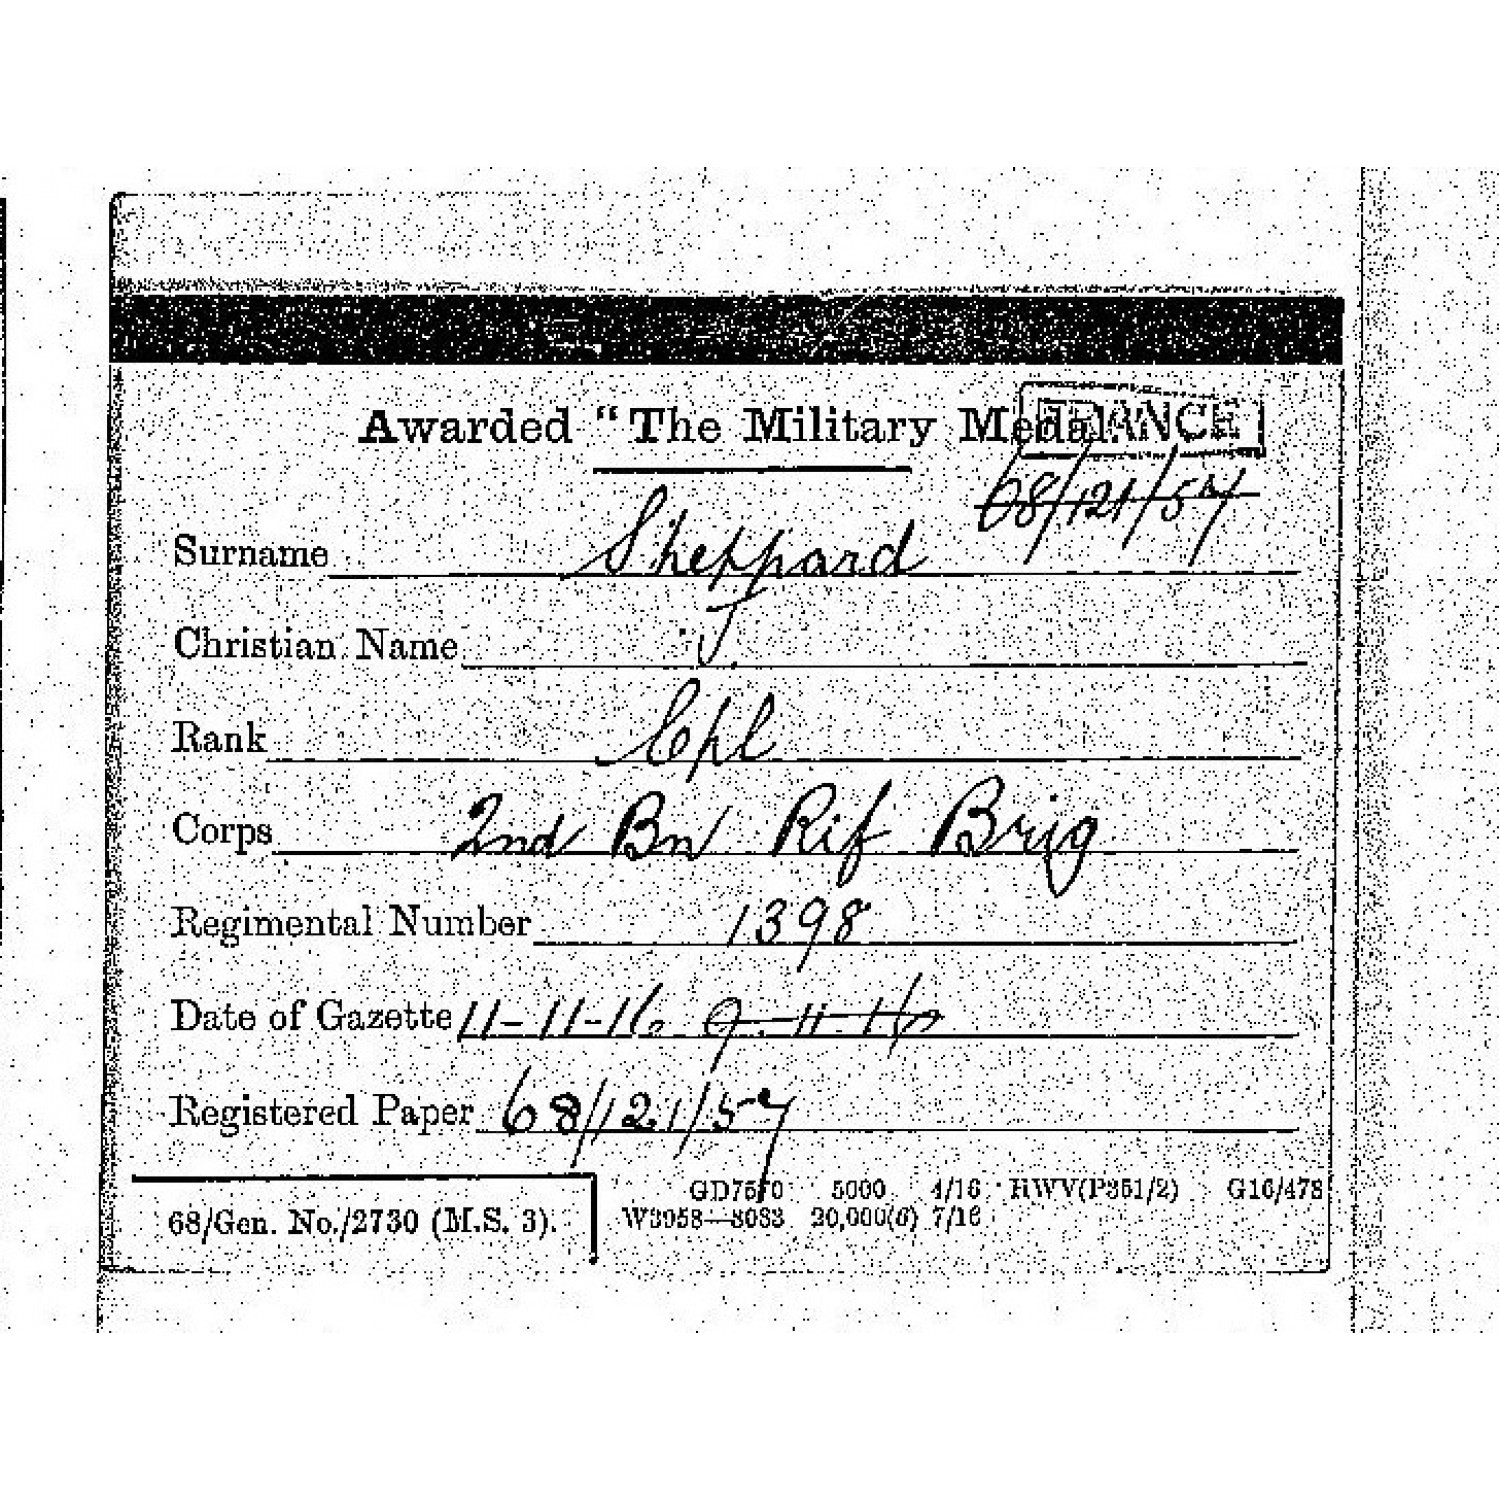 Awarded "The Military Medal.
FRANCE
68/121/57
Surname Sheppard
Christian Name J.
Rank Cpl
Corps 2nd Bn Rif Brig
Regimental Number 1398
Date of Gazette 11-11-16 9-11-16
Registered Paper 68/121/57
68/Gen. No./2730 (M.S. 3).
GD7570 5000 4/16 HWV(P351/2) G16/478
W3958—8033 20,000(6) 7/16